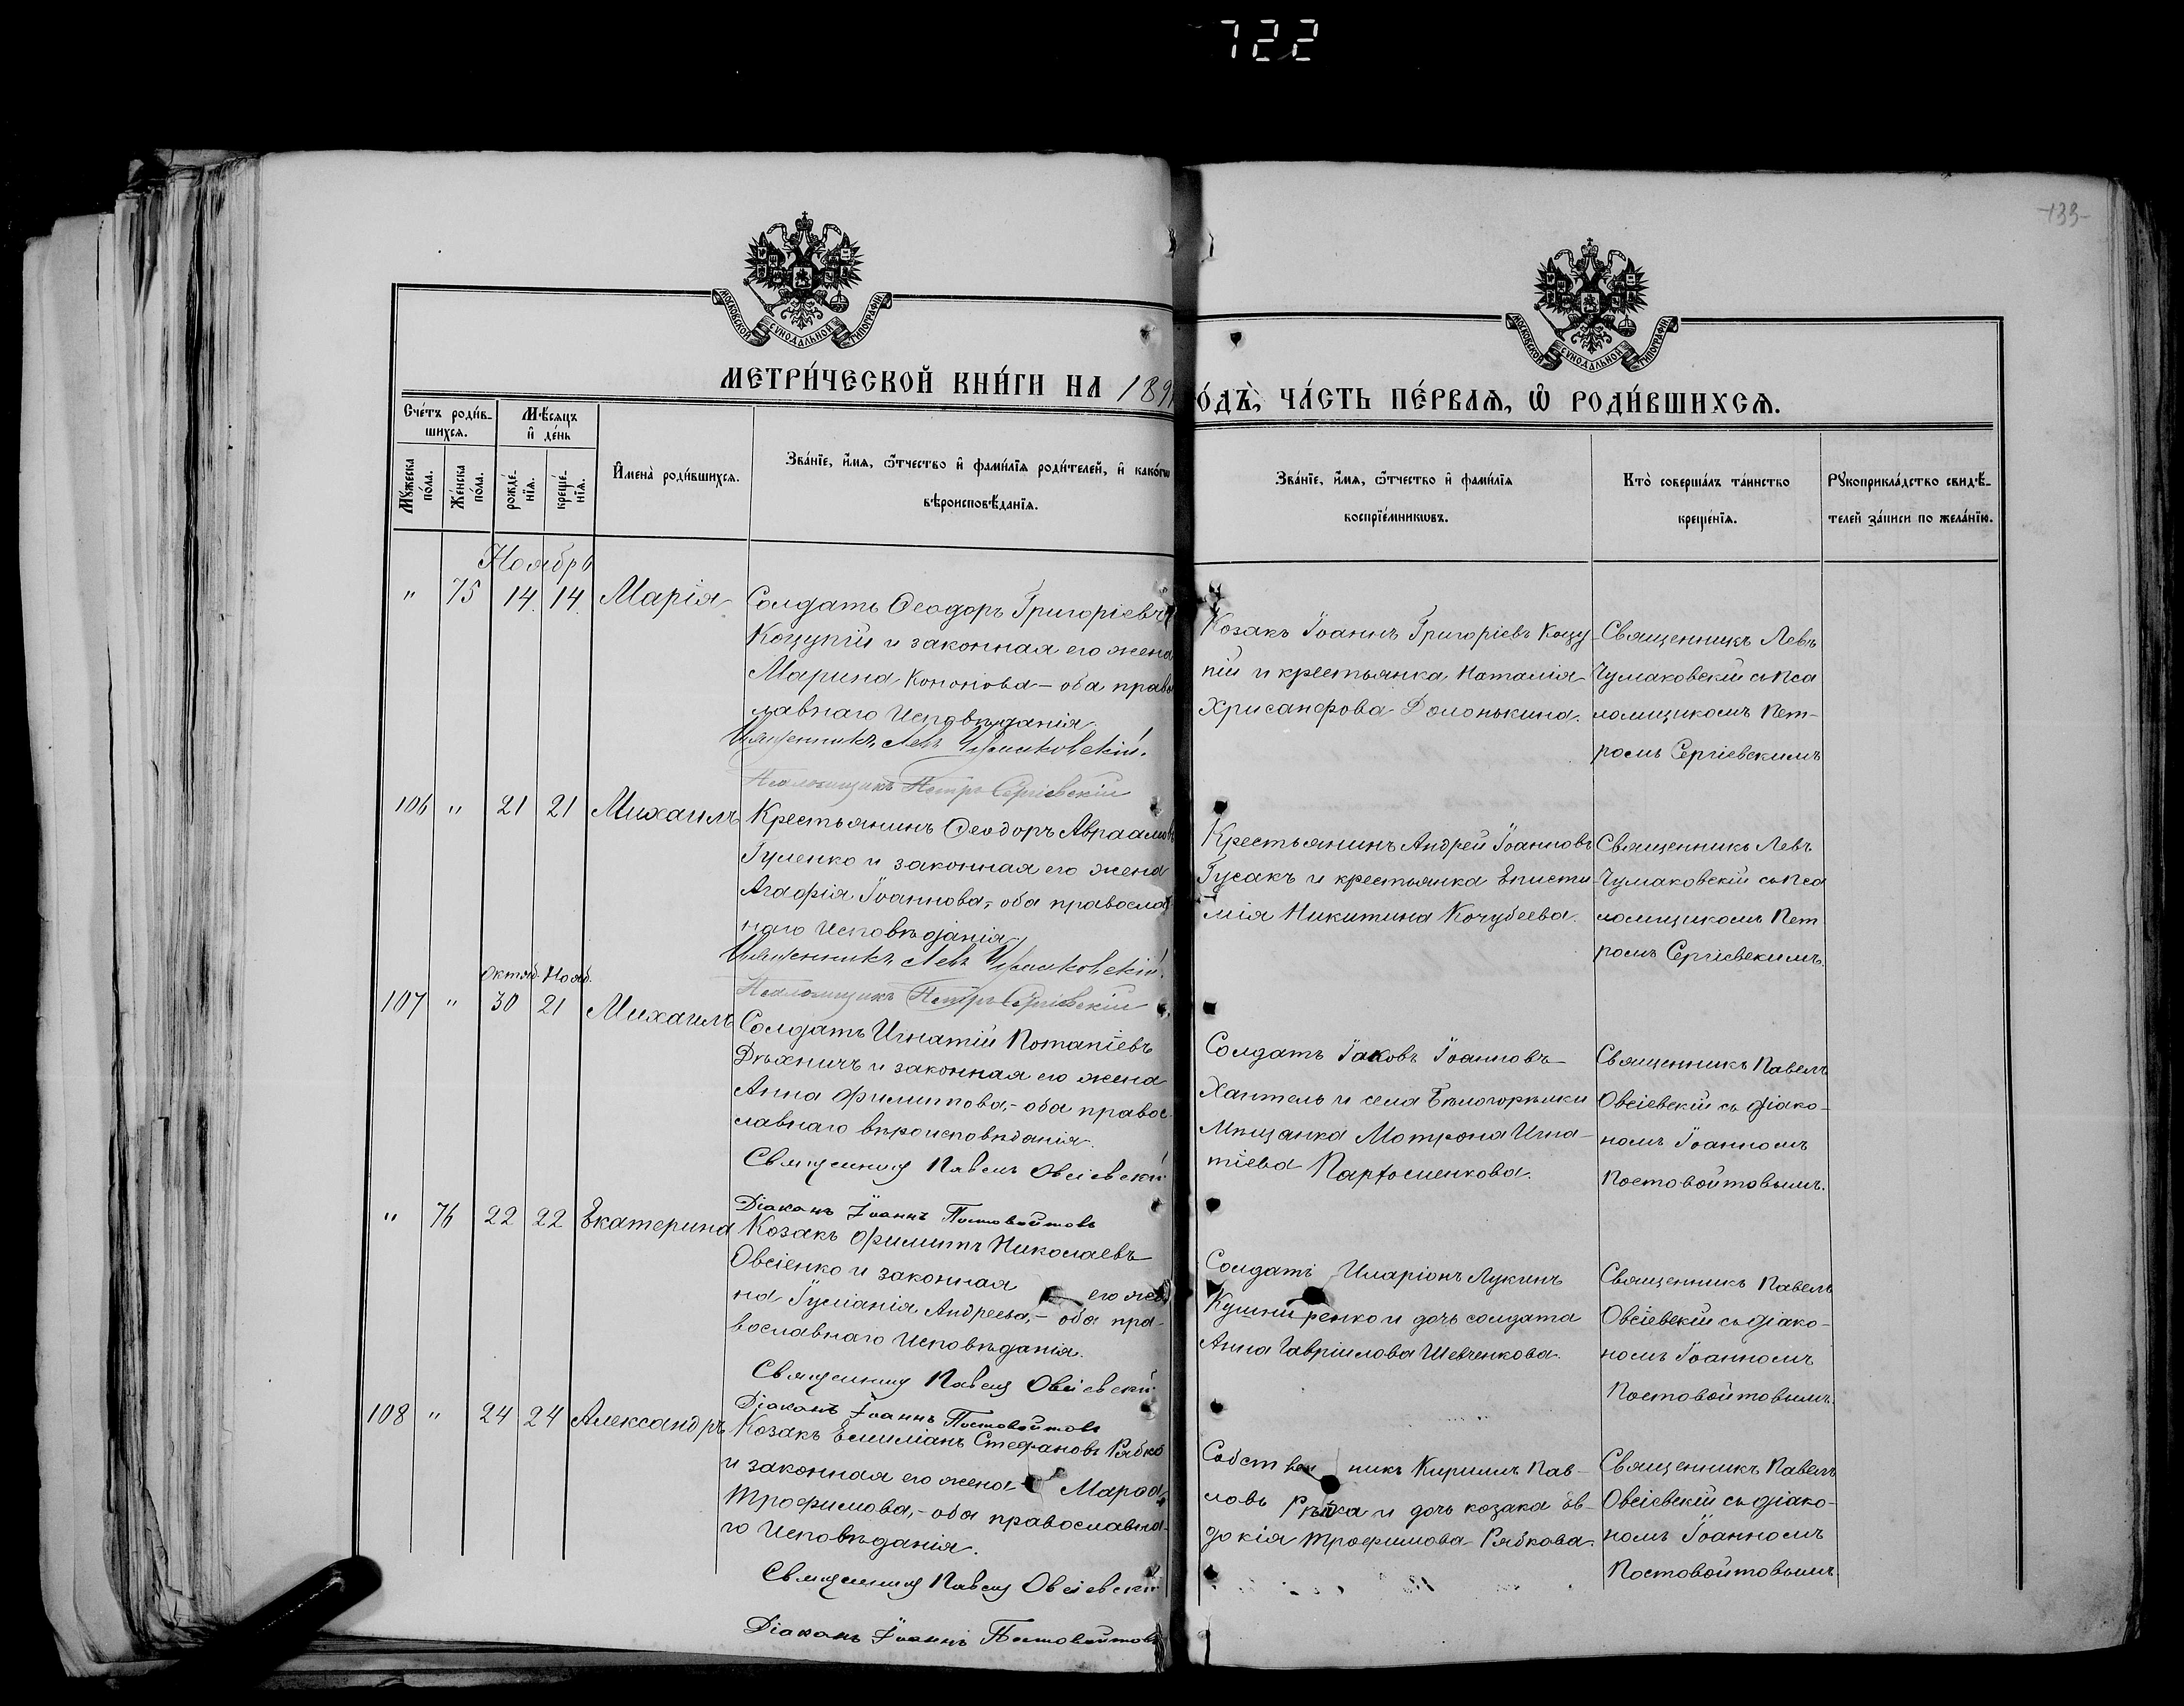 722
-133-
МОСКОВСКОЙ СѴНОДАЛЬНОЙ ТИПОГРАФІИ
МОСКОВСКОЙ СѴНОДАЛЬНОЙ ТИПОГРАФІИ
МЕТРИ́ЧЕСКОЙ КНИ́ГИ НА 189
О́ДЪ, ЧА́СТЬ ПЕ́РВАѦ, Ѡ҆ РОДИ́ВШИХСѦ.
Сче́тъ роди́в-
шихсѧ.
Мꙋ́жеска
по́ла.
Же́нска
по́ла.
Мѣ́сѧцъ
и҆ де́нь
рожде́-
нїѧ.
креще́-
нїѧ.
И҆мена̀ роди́вшихсѧ.
Зва́нїе, и҆́мѧ, ѻ҆́тчество и҆ фами́лїѧ роди́телей, и҆ како́гѡ
вѣроисповѣ́данїѧ.
Зва́нїе, и҆́мѧ, ѻ҆́тчество и҆ фами́лїѧ
воспрїе́мникѡвъ.
Кто̀ соверша́лъ та́инство
креще́нїѧ.
Рꙋкоприкла́дство свидѣ́-
телей за́писи по жела́нїю.
Ноябрь
" 75 14. 14. Марія
Солдатъ Ѳеодоръ Григоріевъ
Коцупій и законная его жена
Марина Кононова — оба право
славнаго Исповѣданія.
Священникъ Левъ Чумаковскій.
Псаломщикъ Петръ Сергіевскій
Козакъ Іоаннъ Григоріевъ Коцу-
пій и крестьянка Наталія
Хрисанфова Долонькина.
Священникъ Левъ
Чумаковскій съ Пса
ломщикомъ Пет-
ромъ Сергіевскимъ
106 " 21 21 Михаилъ
Крестьянинъ Ѳеодоръ Авраамовъ
Гуленко и законная его жена
Агафія Іоаннова,- оба православ
наго Исповѣданія.
Священникъ Левъ Чумаковскій.
Псаломщикъ Петръ Сергіевскій
Крестьянинъ Андрей Іоанновъ
Гусакъ и крестьянка Еписти-
мія Никитина Кочубеева.
Священникъ Левъ
Чумаковскій съ Пса
ломщикомъ Пет
ромъ Сергіевскимъ.
Октяб. Нояб.
107 " 30 21 Михаилъ
Солдатъ Игнатій Потапіевъ
Дѣхничъ и законная его жена
Анна Филиппова,- оба правос
славнаго вѣроисповѣданія.
Священникъ Павелъ Овсіевскій
Діаконъ Іоаннъ Постовойтовъ
Солдатъ Іаковъ Іоанновъ
Хантель и села Бѣлогорѣлки
Мѣщанка Матрона Игна-
тіева Парфоменкова.
Священникъ Павелъ
Овсіевскій съ діако-
номъ Іоанномъ
Постовойтовымъ.
" 76 22 22 Екатерина
Козакъ Филиппъ Николаевъ
Овсіенко и законная его же-
на Іуліанія Андреева,- оба пра-
вославнаго Исповѣданія.
Священникъ Павелъ Овсіевскій
Діаконъ Іоаннъ Постовойтовъ
Солдатъ Иларіонъ Лукинъ
Кушниренко и дочь солдата
Анна Гавріилова Шевченкова.
Священникъ Павелъ
Овсіевскій съ діако-
номъ Іоанномъ
Постовойтовымъ.
108 " 24 24 Александръ
Козакъ Емиліанъ Стефановъ Рябко
и законная его жена Марфа
Трофимова,- оба православна-
го Исповѣданія.
Священникъ Павелъ Овсіевскій
Діаконъ Іоаннъ Постовойтовъ
Собственникъ Кириллъ Пав-
ловъ Рѣпка и дочь козака Ев-
докія Трофимова Рябкова.
Священникъ Павелъ
Овсіевскій съ діако-
номъ Іоанномъ
Постовойтовымъ.